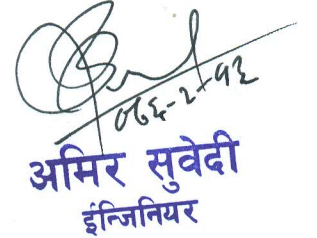 ०७६-२-१३
अमिर सुवेदी
इन्जिनियर